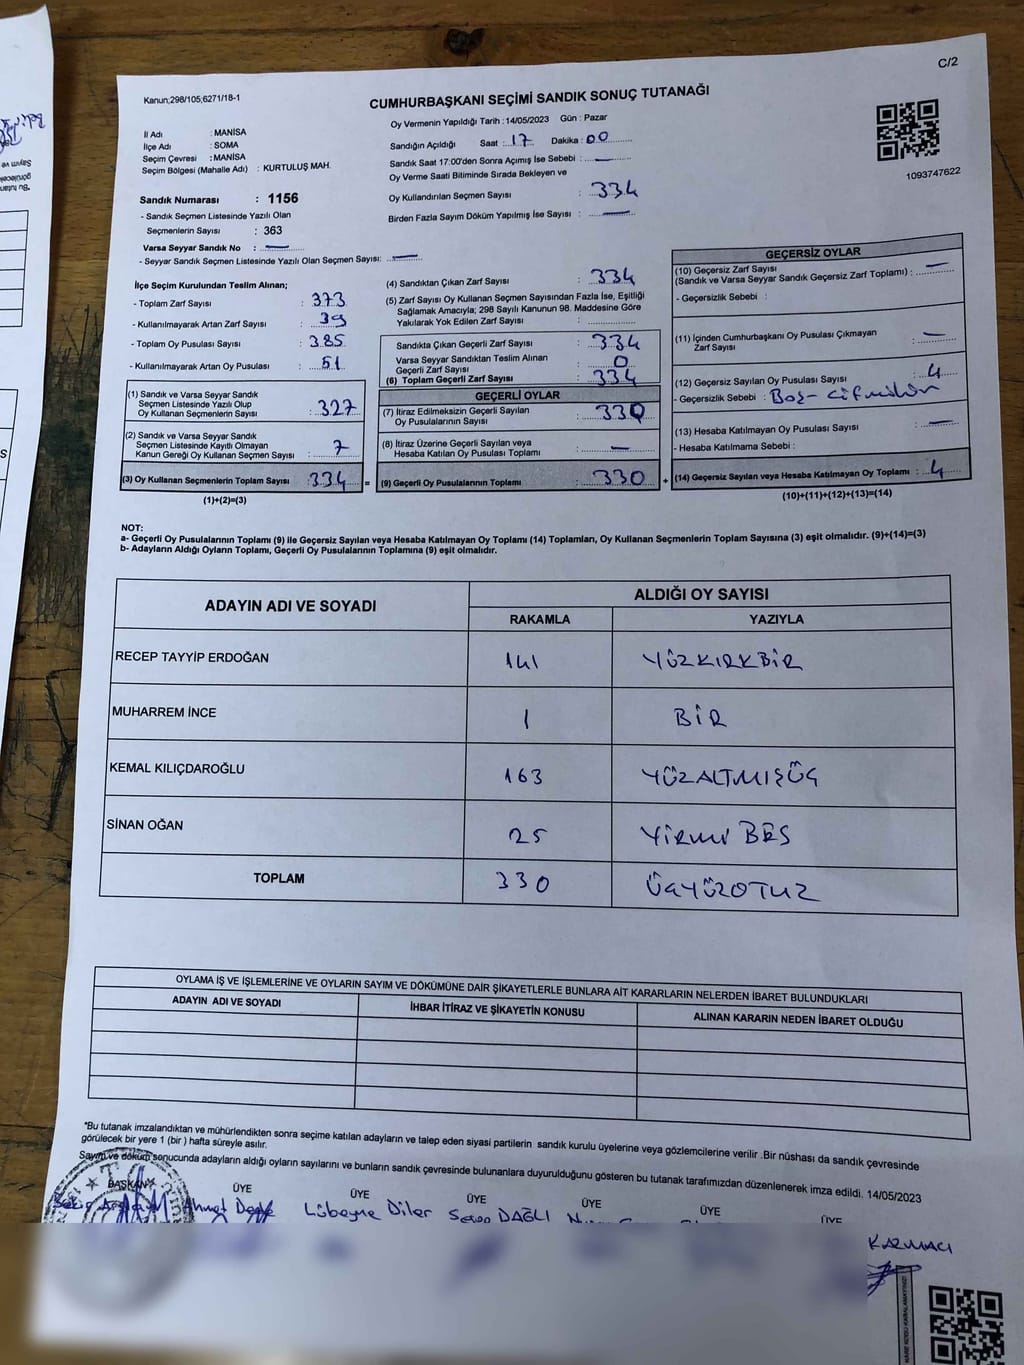 C/2
Kanun;298/105;6271/18-1
CUMHURBAŞKANI SEÇİMİ SANDIK SONUÇ TUTANAĞI
İl Adı : MANİSA
İlçe Adı : SOMA
Seçim Çevresi : MANİSA
Seçim Bölgesi (Mahalle Adı) : KURTULUŞ MAH.
Sandık Numarası : 1156
- Sandık Seçmen Listesinde Yazılı Olan
Seçmenlerin Sayısı : 363
Varsa Seyyar Sandık No : —
- Seyyar Sandık Seçmen Listesinde Yazılı Olan Seçmen Sayısı: —
Oy Vermenin Yapıldığı Tarih : 14/05/2023 Gün : Pazar
Sandığın Açıldığı Saat : 17 Dakika : 00
Sandık Saat 17:00'den Sonra Açımış İse Sebebi : —
Oy Verme Saati Bitiminde Sırada Bekleyen ve
Oy Kullandırılan Seçmen Sayısı : 334
Birden Fazla Sayım Döküm Yapılmış İse Sayısı : —
1093747622
İlçe Seçim Kurulundan Teslim Alınan;
- Toplam Zarf Sayısı : 373
- Kullanılmayarak Artan Zarf Sayısı : 39
- Toplam Oy Pusulası Sayısı : 385
- Kullanılmayarak Artan Oy Pusulası : 51
(1) Sandık ve Varsa Seyyar Sandık
Seçmen Listesinde Yazılı Olup
Oy Kullanan Seçmenlerin Sayısı : 327
(2) Sandık ve Varsa Seyyar Sandık
Seçmen Listesinde Kayıtlı Olmayan
Kanun Gereği Oy Kullanan Seçmen Sayısı : 7
(3) Oy Kullanan Seçmenlerin Toplam Sayısı : 334 =
(1)+(2)=(3)
(4) Sandıktan Çıkan Zarf Sayısı : 334
(5) Zarf Sayısı Oy Kullanan Seçmen Sayısından Fazla İse, Eşitliği
Sağlamak Amacıyla; 298 Sayılı Kanunun 98. Maddesine Göre
Yakılarak Yok Edilen Zarf Sayısı :
Sandıkta Çıkan Geçerli Zarf Sayısı : 334
Varsa Seyyar Sandıktan Teslim Alınan
Geçerli Zarf Sayısı : 0
(6) Toplam Geçerli Zarf Sayısı : 334
GEÇERLİ OYLAR
(7) İtiraz Edilmeksizin Geçerli Sayılan
Oy Pusulalarının Sayısı : 330
(8) İtiraz Üzerine Geçerli Sayılan veya
Hesaba Katılan Oy Pusulası Toplamı : —
(9) Geçerli Oy Pusulalarının Toplamı : 330 +
GEÇERSİZ OYLAR
(10) Geçersiz Zarf Sayısı
(Sandık ve Varsa Seyyar Sandık Geçersiz Zarf Toplamı) : —
- Geçersizlik Sebebi :
(11) İçinden Cumhurbaşkanı Oy Pusulası Çıkmayan
Zarf Sayısı : —
(12) Geçersiz Sayılan Oy Pusulası Sayısı : 4
- Geçersizlik Sebebi : Boş-
(13) Hesaba Katılmayan Oy Pusulası Sayısı : —
- Hesaba Katılmama Sebebi :
(14) Geçersiz Sayılan veya Hesaba Katılmayan Oy Toplamı : 4
(10)+(11)+(12)+(13)=(14)
NOT:
a- Geçerli Oy Pusulalarının Toplamı (9) ile Geçersiz Sayılan veya Hesaba Katılmayan Oy Toplamı (14) Toplamları, Oy Kullanan Seçmenlerin Toplam Sayısına (3) eşit olmalıdır. (9)+(14)=(3)
b- Adayların Aldığı Oyların Toplamı, Geçerli Oy Pusulalarının Toplamına (9) eşit olmalıdır.
ADAYIN ADI VE SOYADI ALDIĞI OY SAYISI
RAKAMLA YAZIYLA
RECEP TAYYİP ERDOĞAN 141 YÜZKIRKBİR
MUHARREM İNCE 1 BİR
KEMAL KILIÇDAROĞLU 163 YÜZALTMIŞÜÇ
SİNAN OĞAN 25 YİRMİ BEŞ
TOPLAM 330 ÜÇYÜZOTUZ
OYLAMA İŞ VE İŞLEMLERİNE VE OYLARIN SAYIM VE DÖKÜMÜNE DAİR ŞİKAYETLERLE BUNLARA AİT KARARLARIN NELERDEN İBARET BULUNDUKLARI
ADAYIN ADI VE SOYADI İHBAR İTİRAZ VE ŞİKAYETİN KONUSU ALINAN KARARIN NEDEN İBARET OLDUĞU
*Bu tutanak imzalandıktan ve mühürlendikten sonra seçime katılan adayların ve talep eden siyasi partilerin sandık kurulu üyelerine veya gözlemcilerine verilir .Bir nüshası da sandık çevresinde
görülecek bir yere 1 (bir ) hafta süreyle asılır.
Sayım ve döküm sonucunda adayların aldığı oyların sayılarını ve bunların sandık çevresinde bulunanlara duyurulduğunu gösteren bu tutanak tarafımızdan düzenlenerek imza edildi. 14/05/2023
BAŞKAN ÜYE ÜYE ÜYE ÜYE ÜYE ÜYE
Lübeyne Diler DAĞLI
KAZMACI